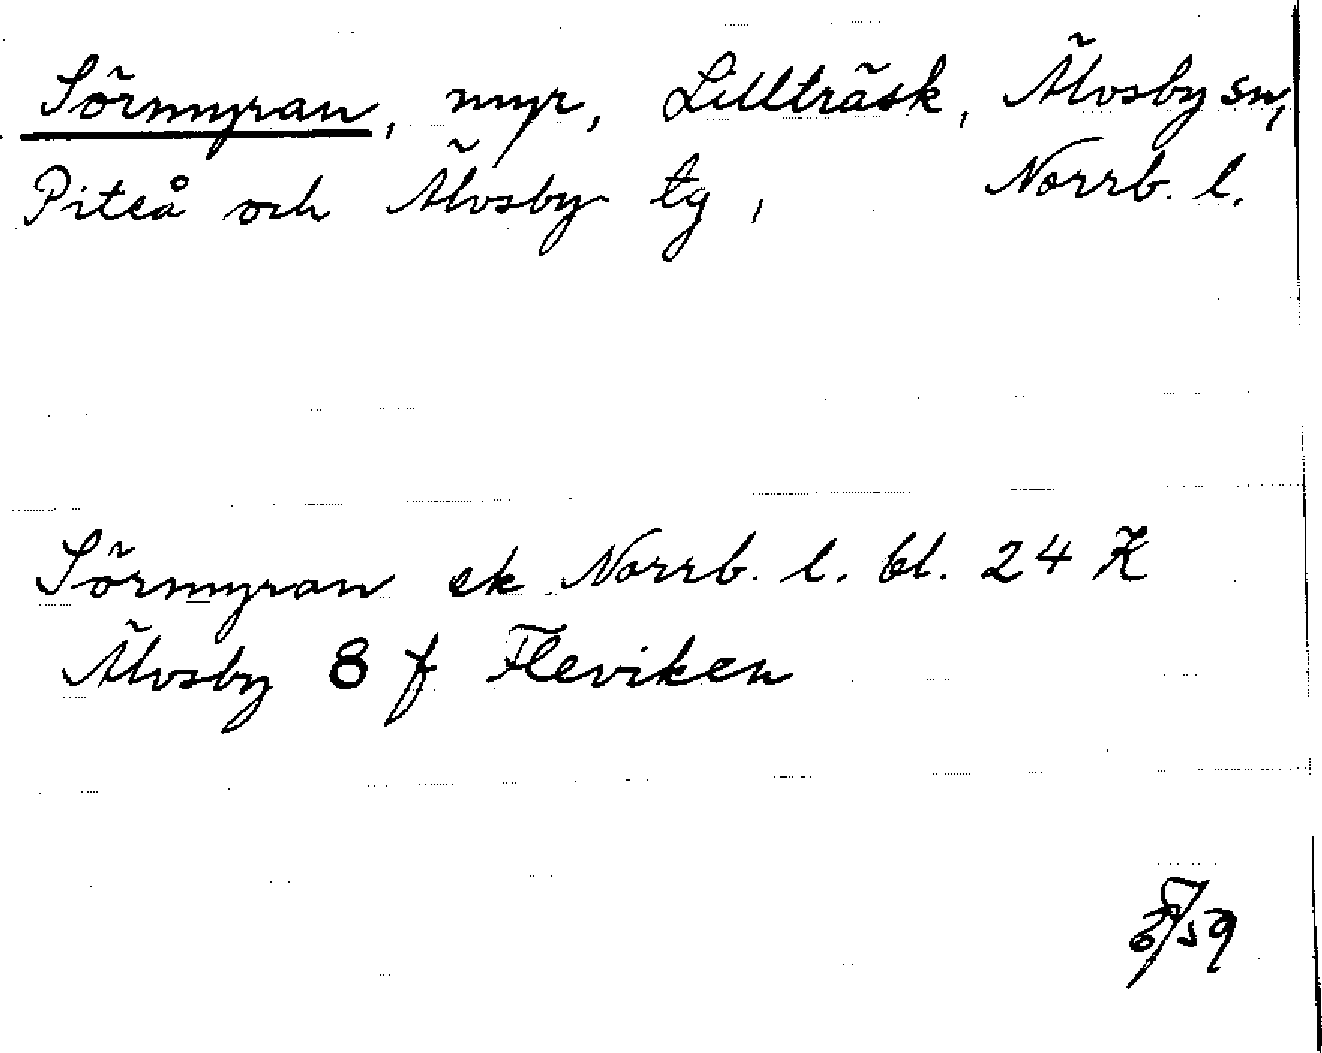 Sörmyran, myr, Lillträsk, Älvsby sn,
Piteå och Älvsby tg, Norrb. l.
Sörmyran ek Norrb. l. bl. 24 K
Älvsby 8 f Fleviken